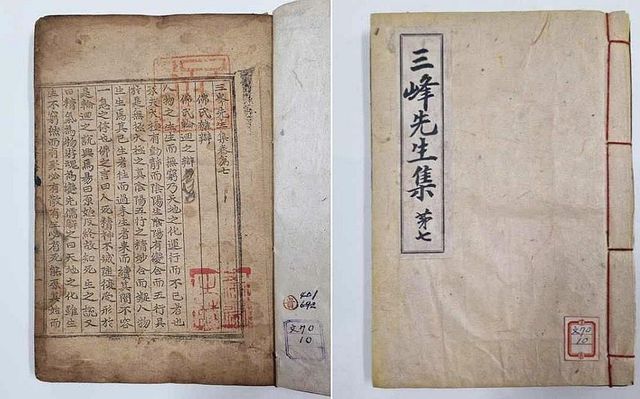 三峯先生集卷第七
佛氏雜辯
佛氏輪廻之辯
人物之生生而無窮乃天地之化運行而不已者也
原夫太極有動靜而陰陽生陰陽有變合而五行具
於是無極太極之眞陰陽五行之精妙合而凝人物
生生焉其已生者往而過未生者來而續其間不容
一息之停也佛之言曰人死精神不滅隨復受形於
是輪廻之說興焉易曰原始反終故知死生之說又
曰精氣爲物游魂爲變先儒解之曰天地之化雖生
生不窮然而有聚必有散有生必有死能原其始而
401
642
文70
10
三峰先生集 第七
文70
10